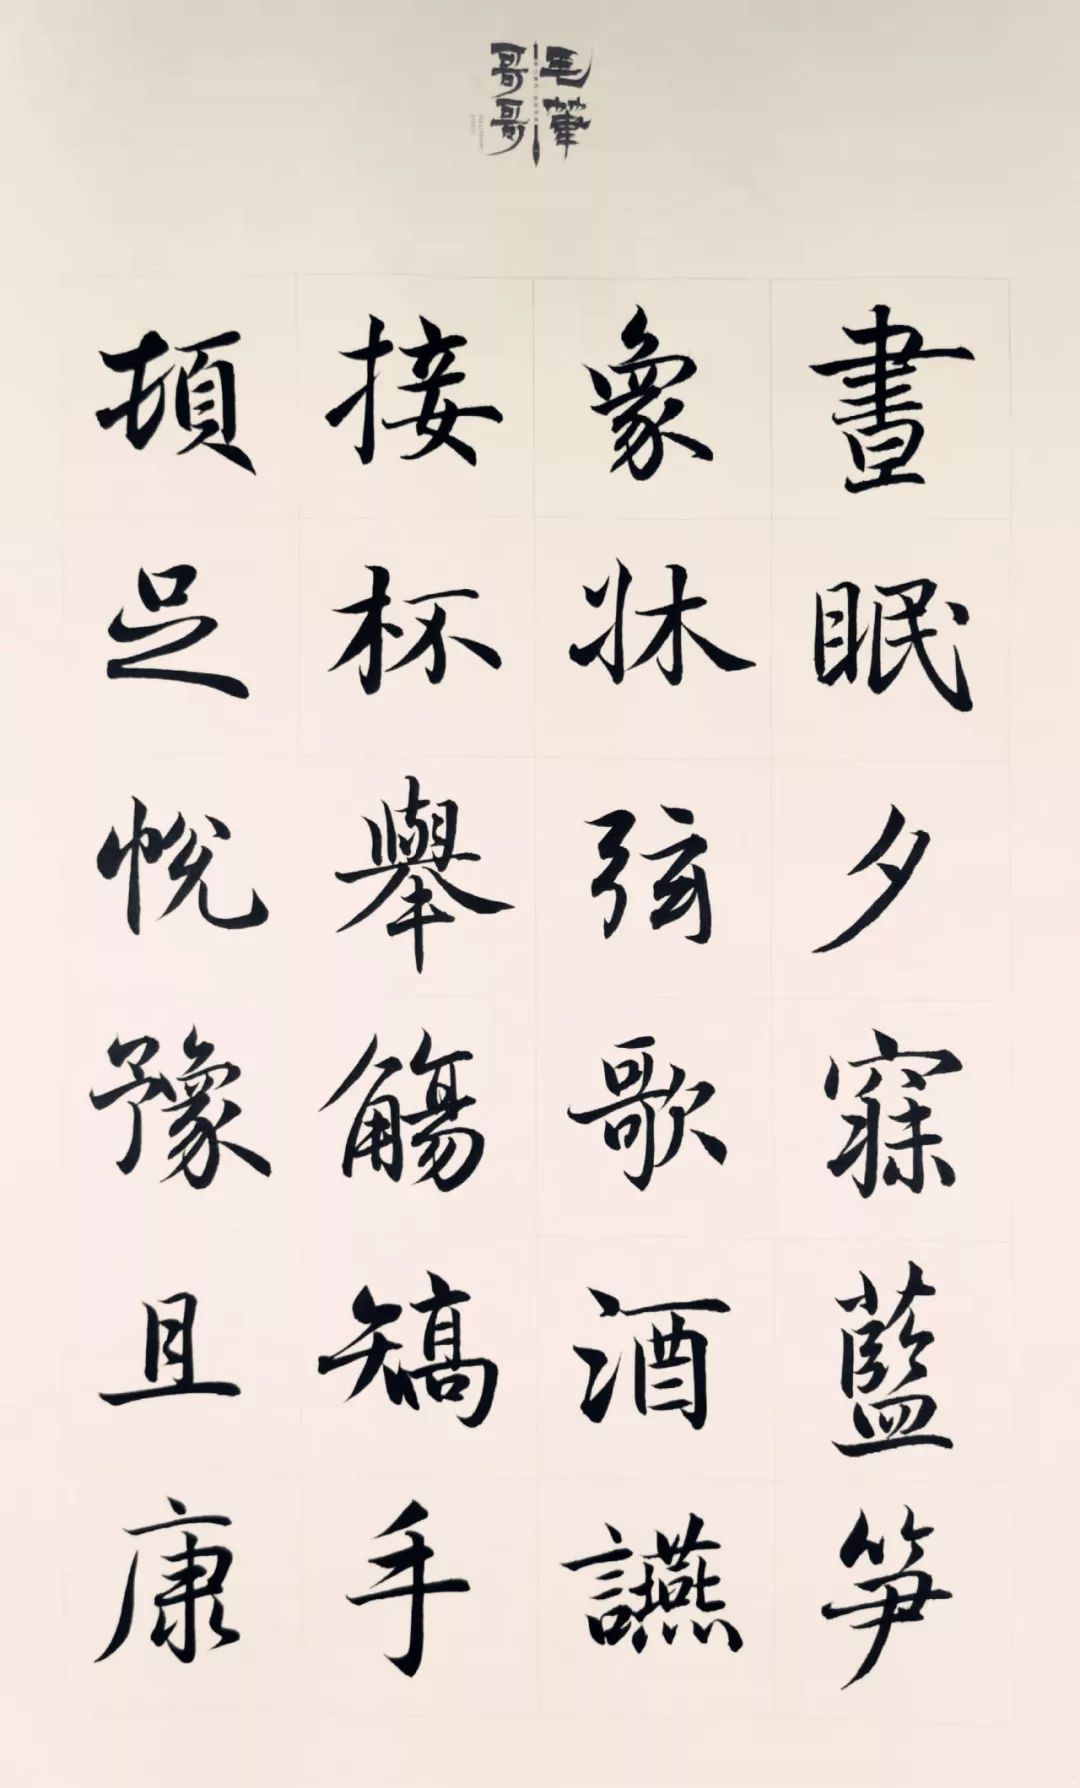 毛筆
哥哥
晝眠夕寐藍笋
象牀弦歌酒讌
接杯舉觴矯手
頓足悅豫且康